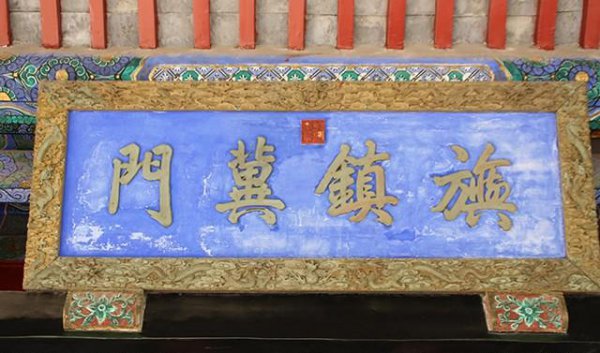 旗鎮冀門